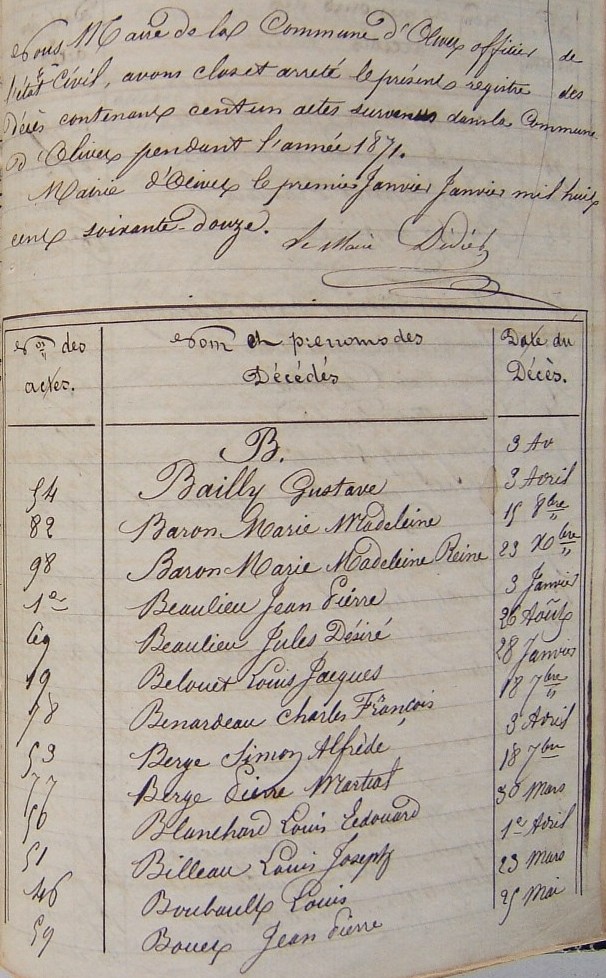 Nous Maire de la Commune d'Olivet officier de
l'état Civil, avons clos et arreté le présent registre des
Décès contenant cent un actes survenus dans la Commune
d'Olivet pendant l'année 1871.
Mairie d'Olivet le premier Janvier Janvier mil huit
cent soixante-douze.
Le Maire Didier
Nos des actes. Nom et prenoms des Décédés Date du Décès.
B. 3 Av
54 Bailly Gustave 3 Avril
82 Baron Marie Madeleine 15 8bre
98 Baron Marie Madeleine Reine 23 Xbre
1er Beaulieu Jean Pierre 3 Janvier
69 Beaulieu Jules Désiré 26 Août
19 Belouet Louis Jacques 28 Janvier
78 Benardeau Charles François 18 7bre
53 Berge Simon Alfrède 3 Avril
77 Berge Pierre Martial 18 7bre
50 Blanchard Louis Edouard 30 Mars
51 Billeau Louis Joseph 1er Avril
46 Boubault Louis 23 Mars
59 Bouet Jean Pierre 25 Mai